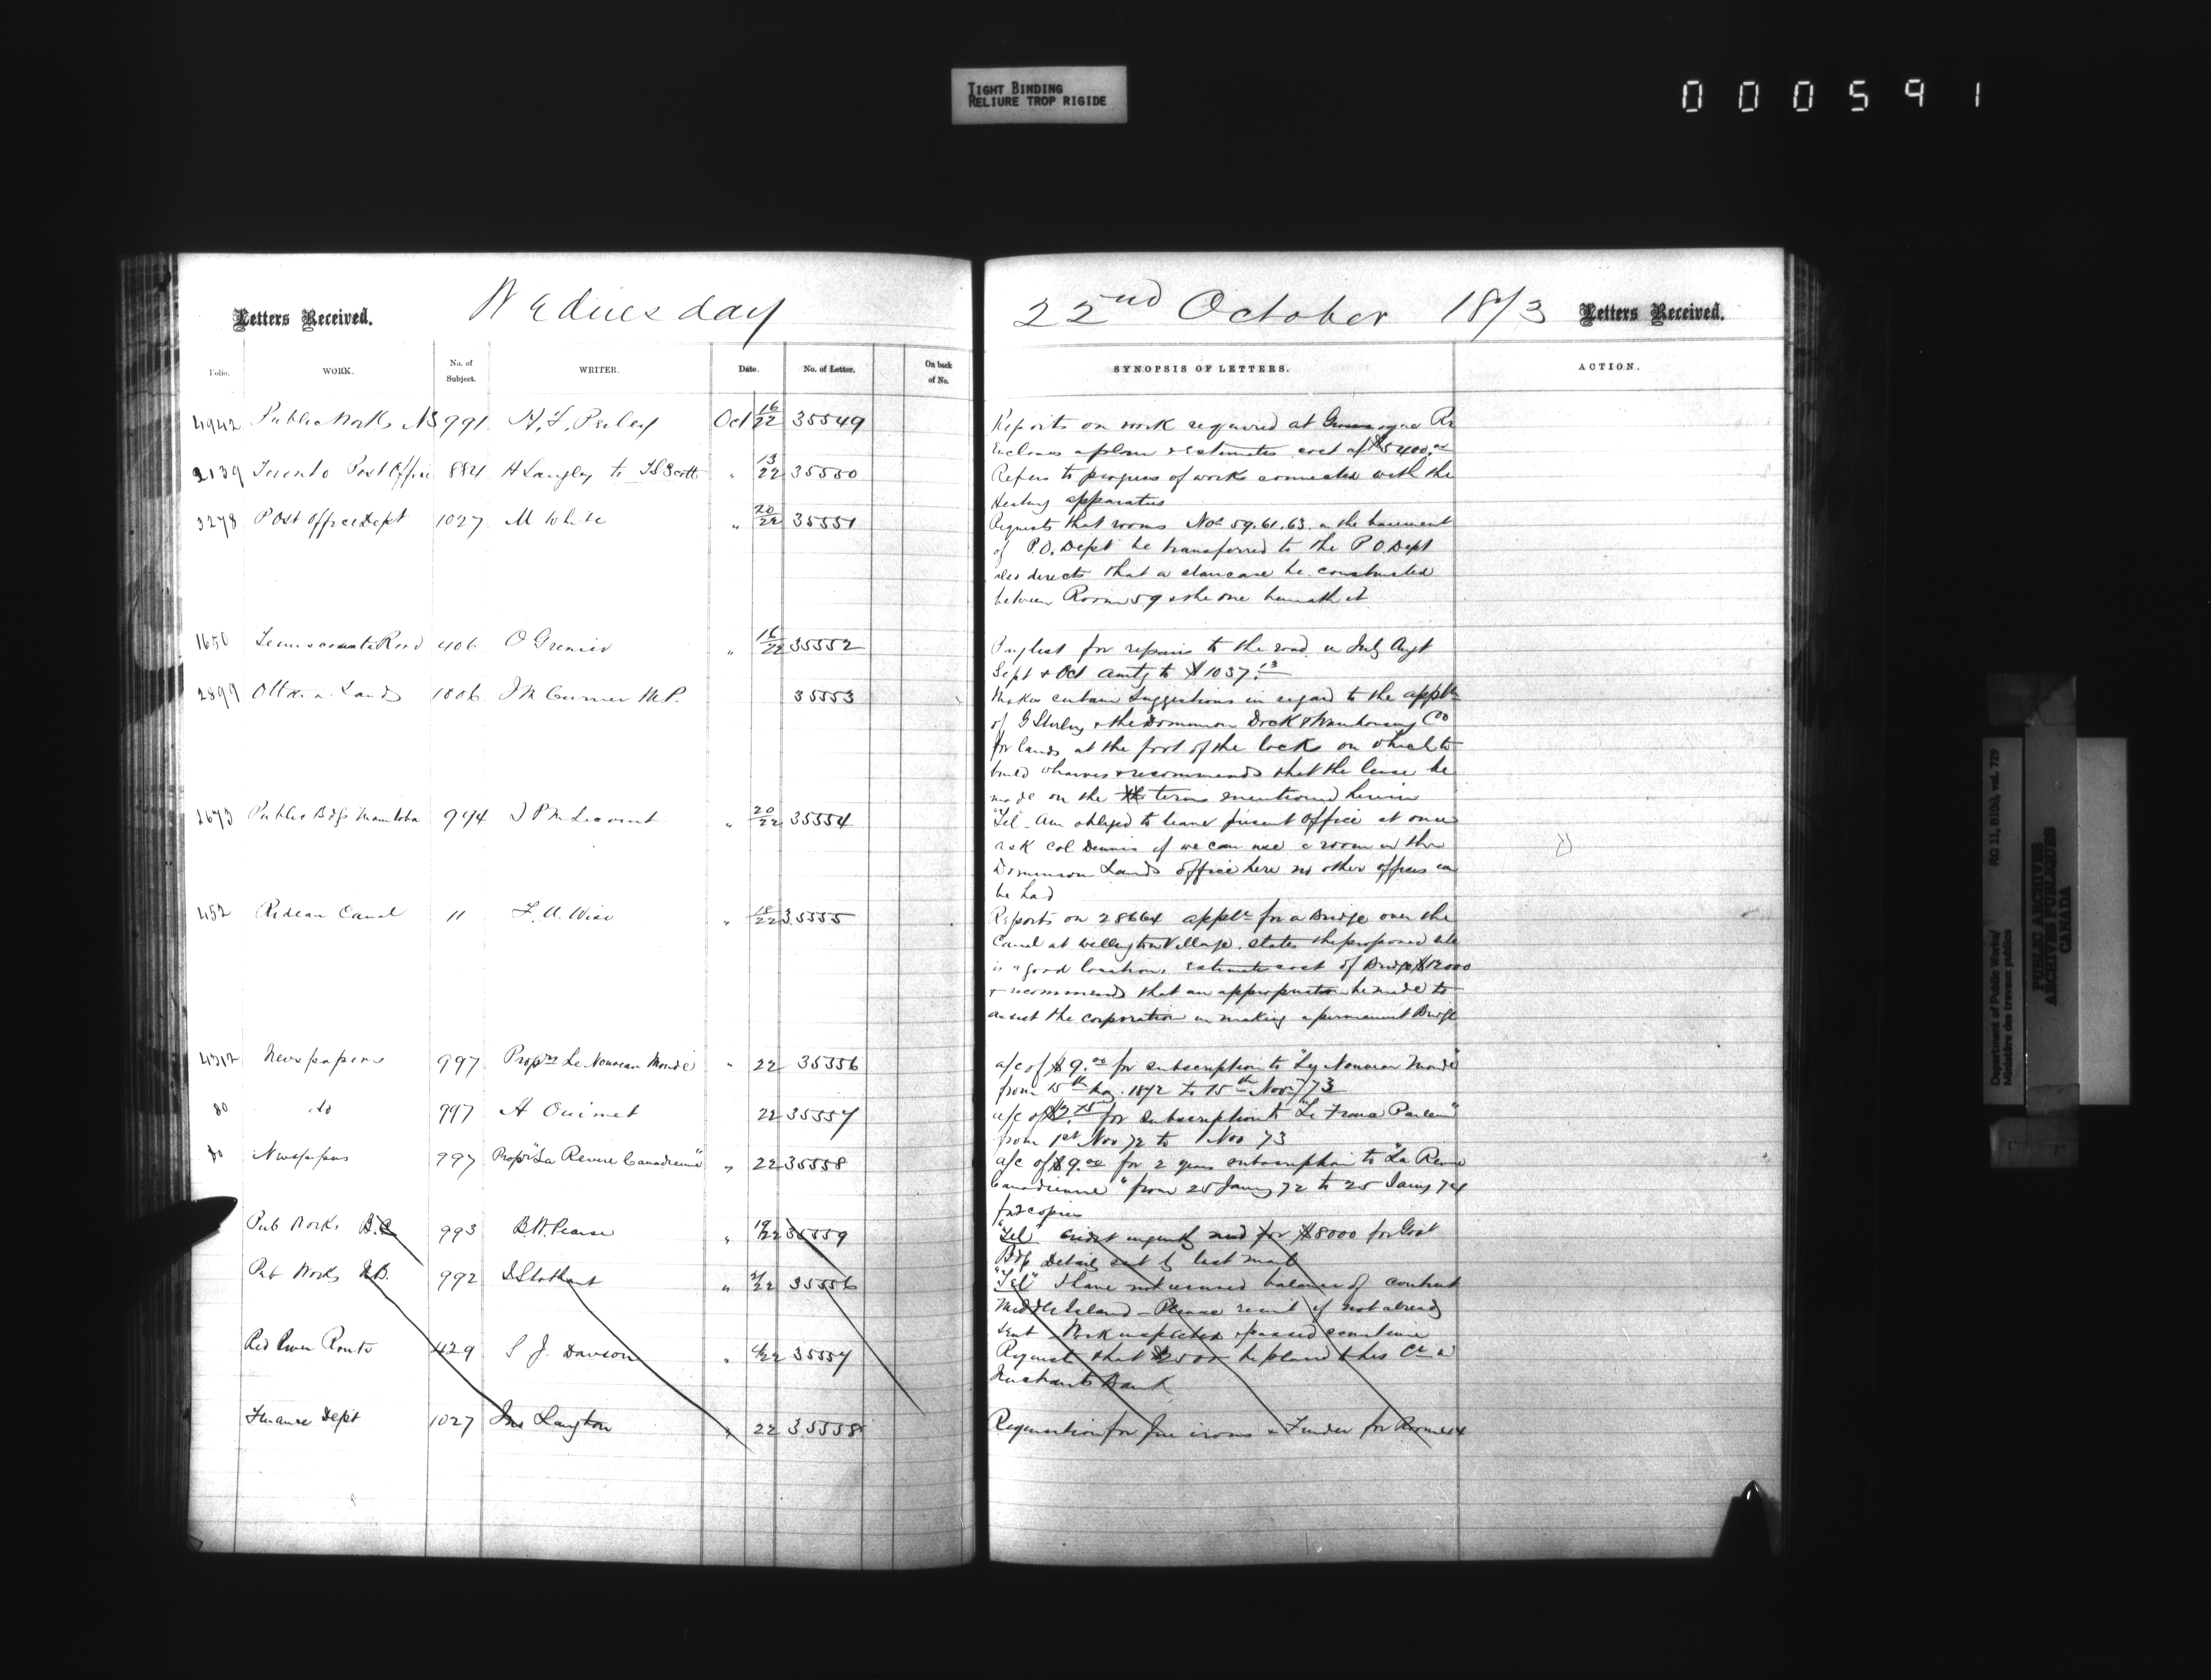 TIGHT BINDING
RELIURE TROP RIGIDE
000591
Letters Received.
Wednesday
22nd October 1873
Letters Received.
Folio.
WORK.
No. of Subject.
WRITER.
Date.
No. of Letter.
On back of No.
SYNOPSIS OF LETTERS.
ACTION.
4942 Public Works NS 991 H. F. Perley Oct 16/22 35549
Reports on work required at River
Encloses a plan & estimates cost of $5400.00
2139 Toronto Post Office 884 H Langley to T S Scott " 13/22 35550
Refers to progress of works connected with the
Heating apparatus
3278 Post Office Dept 1027 M White " 20/22 35551
Requests that rooms Nos 59.61.63. in the basement
of P.O. Dept be transferred to the P O. Dept
also directs that a staircase be constructed
between Room 59 & the one beneath it
1650 Temiscouata Road 406 O Grenier " 16/22 35552
Paylist for repairs to the road in July Augt
Sept & Oct amtg to $1037.13
2899 Ottawa Lands 1006 J M Currier M.P. 35553
Makes certain suggestions in regard to the appltn
of G Sterling & the Dominion Dock & Warehousing Coo
for lands at the foot of the locks on which to
build wharves & recommends that the lease be
made on the terms mentioned herein
2673 Public Bdgs Manitoba 994 J P M Lecourt " 20/22 35554
"Tel" Am obliged to leave present office at once
ask Col Dennis if we can use a room in the
Dominion Lands office here no other offices can
be had
452 Rideau Canal 11 F. A. Wise " 18/22 35555
Reports on 28664 appltn for a Bridge over the
Canal at Wellington Village. States the proposed site
is a good location, estimate cost of Bridge $12000
& recommends that an appropriation be made to
assist the corporation in making a permanent Bridge
4312 Newspapers 997 Proprs Le Nouveau Monde " 22 35556
a/c of $9.00 for subscription to "Le Nouveau Monde"
from 15th 1872 to 15th Nov /73
80 do 997 A Ouimet 22 35557
a/c of for subscription to "Le Franc Parleur"
from 1st Nov 72 to 1 Nov 73
80 Newspapers 997 Propr "La Revue Canadienne" " 22 35558
a/c of $9.00 for 2 years subscription to "La Revue
Canadienne" from 25 Jany 72 to 25 Jany 74
for 2 copies
Pub Works B.C. 993 B. W. Pearse " 19/22 35559
"Tel" credit urgently need for $8000 for Govt
Bdg Details sent by last mail
Pub Works N.B. 992 J Stothart " 21/22 35556
"Tel" I have not received balance of contract
Middle Island - Please remit if not already
sent Work inspected & passed
Red River Route 429 S J. Dawson " 22 35557
Request that $2500 be placed to his Cr in
Merchants Bank
Finance Dept 1027 Jno Langton " 22 35558
Requisition for fire irons & Fender for Room
Department of Public Works/ RG 11, B1(b), vol. 729
Ministère des travaux publics
PUBLIC ARCHIVES
ARCHIVES PUBLIQUES
CANADA